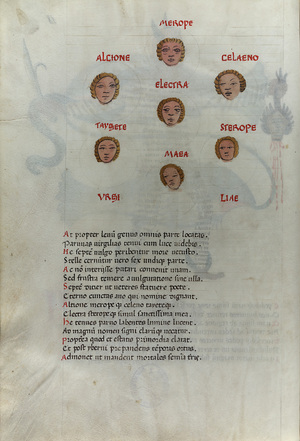 MEROPE
ALCIONE CELAENO
ELECTRA
TAYGETE STEROPE
MAEA
VRGI LIAE
At propter leuum genus omnis parte locatas.
Paruas uirgilias tenui cum luce uidebis.
He septem uulgo peribentur more uetusto.
Stelle cernuntur uero sex undique parte.
Ac non interisse putari conuenit unam.
Sed frustra temere a uulgo ratione sine ulla.
Septem ut ueteres statuere poete.
Eterno cunctas euo qui nomine dignant.
Alcione meropeque celeno taueteque.
Electra steropeque simul sanctissima mea.
He tenues paruo labentes lumine lucent.
At magnum nomen signi clarique uocatur.
Propterea quod et estatis primordia clarat.
Et post yberni prepandens temporis ortus.
Admonet ut mandent mortales semina